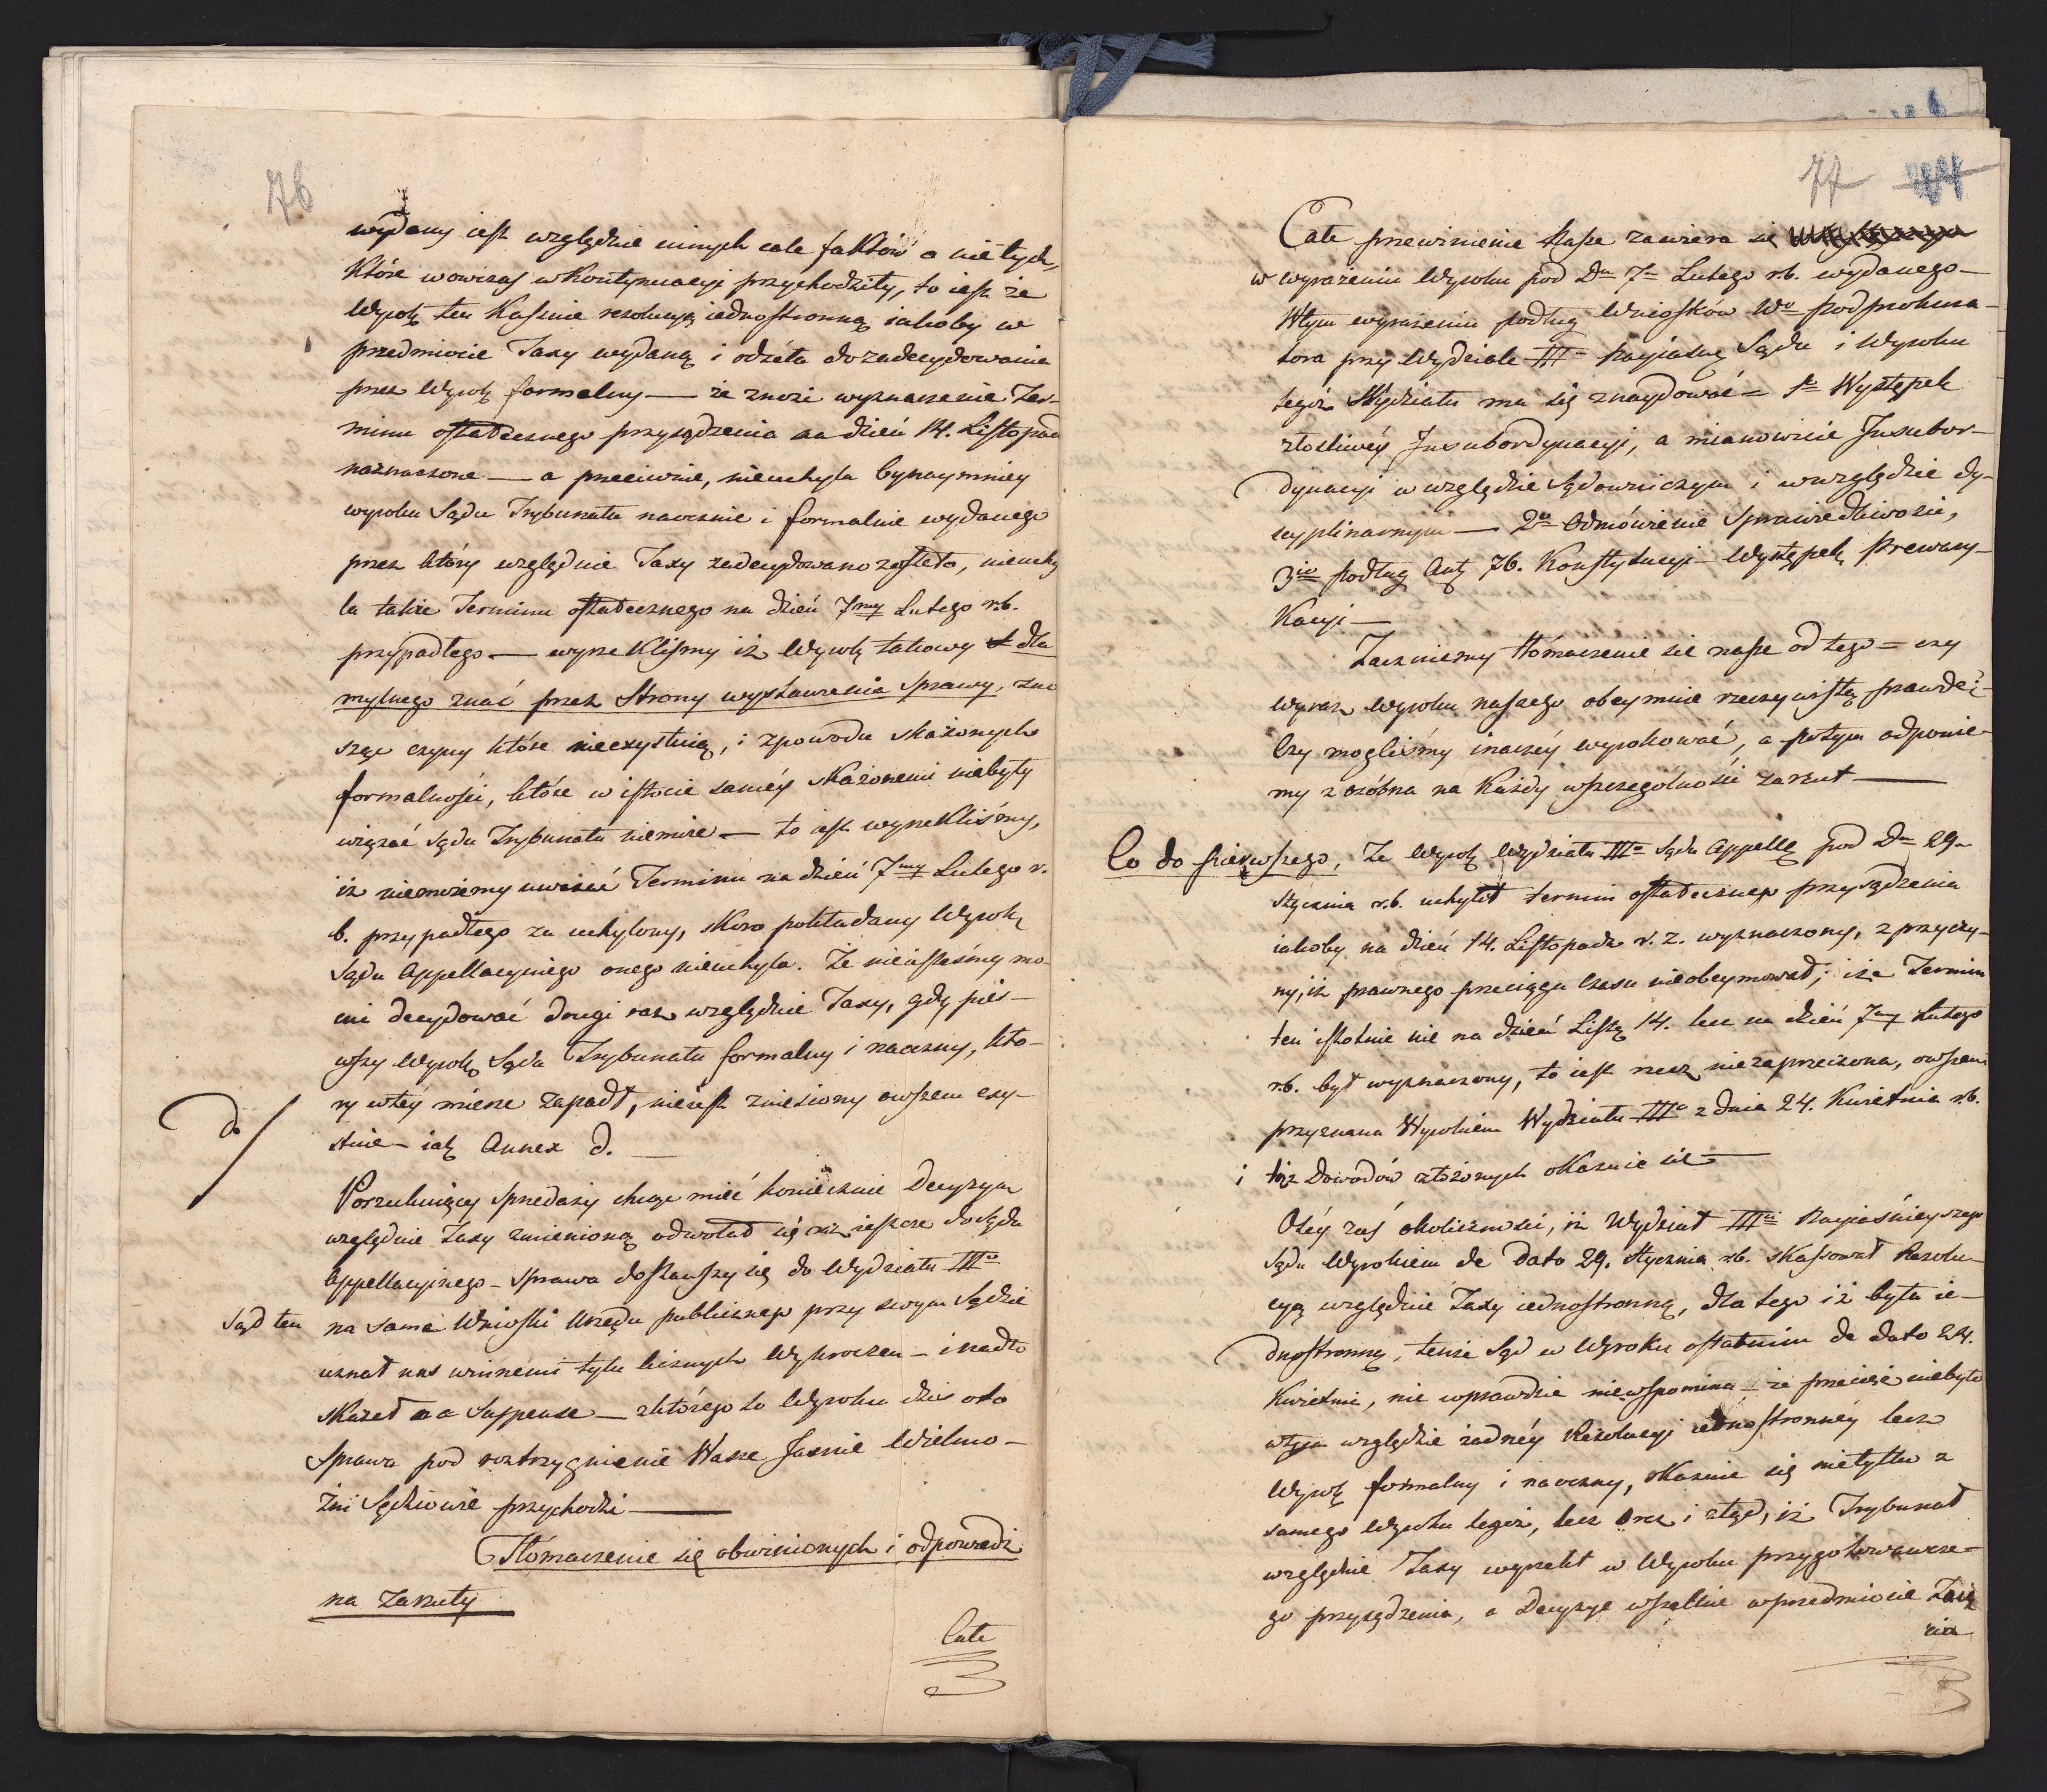 76
wydany iest względnie innych cale faktów a nie tych,
które wowczas w kontynuacyi przychodziły, to iest że
Wyrok ten Kassuie rezolucyą iednostronną iakoby w
przedmiocie Taxy wydaną i odseła do zadecydowania
przez Wyrok formalny — że znosi wyznaczenie Ter-
minu ostatecznego przysądzenia na dzień 14. Listopad
naznaczone — a przeciwnie, nieuchyla bynaymniey
wyroku Sądu Trybunału naocznie i formalnie wydanego
przez który względnie Taxy zadecydowano zostało, nieuchy
la także Terminu ostatecznego na dzień 7my Lutego r.b.
przypadłego — wyrzekliśmy iż Wyrok takowy dla
mylnego znać przez Strony wystawienia sprawy, zno
sząc czyny które nieexystuią, i z powodu skażonych
formalności, które w istocie saméy skażonemi niebyły
wiązać Sądu Trybunału niemoże — to iest wyrzekliśmy,
iż niemożemy uważać Terminu na dzień 7my Lutego r.
b. przypadłego za uchylony, skoro pokładany Wyrok
Sądu Appellacyinego onego nieuchyla. Że nieiesteśmy mo-
cni decydować drugi raz względnie Taxy, gdy pier-
wszy Wyrok Sądu Trybunału formalny i naoczny, któ-
ry w téy mierze zapadł, nieiest zniesiony owszem exy-
stuie — iak Annex d.
d/
Poszukuiący sprzedaży chcąc mieć koniecznie Decyzyą
względnie Taxy zmienioną odwołał się raz ieszcze do Sądu
Appellacyinego — sprawa dostawszy się do Wydziału IIIo
Sąd ten na same Wnioski Urzędu publicznego przy swym Sądzie
uznał nas winnemi tylu licznych Wykroczeń — i nadto
skazał na Suspense — z którego to Wyroku dziś oto
Sprawa pod roztrzygnienie Wasze Jaśnie Wielmo-
żni Sędziowie przychodzi —
Tłómaczenie się obwinionych i odpowiedź
na Zarzuty
Całe
77
Całe przewinienie Nasze zawiera się
w wyrażeniu Wyroku pod Dn 7m Lutego r.b. wydanego —
W tym wyrażeniu podług Wniosków Wo Podprokura-
tora przy Wydziale III Sądu i Wyroku
tegoż Wydziału ma się znaydować = 1o Występek
złośliwéy Insubordynacyi, a mianowicie Insubor-
dynacyi w względzie Sądowniczym i w względzie dy-
scyplinarnym — 2o Odmówienie Sprawiedliwości,
3io podług Art 76. Konstytucyi Występek Prewary-
kacyi —
Zaczniemy tłómaczenie się nasze od tego = czy
wyraz wyroku naszego obeymuie rzeczywistą prawdę? —
Czy mogliśmy inaczéy wyrokować, a potym odpowie-
my z osóbna na Każdy w szczególności zarzut —
Co do pierwszego, Że Wyrok Wydziału IIIo Sądu Appell pod Dn 29
Stycznia r.b. uchylił termin ostatecznego przysądzenia
iakoby na dzień 14. Listopada r. z. wyznaczony, z przyczy-
ny, iż prawnego przeciągu czasu nieobeymował; i że Termin
ten istotnie nie na dzień List 14. lecz na dzień 7my Lutego
r.b. był wyznaczony, to iest rzecz niezaprzeczona, owszem
przyznana Wyrokiem Wydziału IIIo z dnia 24. Kwietnia r.b.
i też Dowodów złożonych okazuie się —
O téy zaś okoliczności, iż Wydział III Nayiaśnieyszego
Sądu Wyrokiem de Dato 29. Stycznia r.b. skassował Rezolu-
cyą względnie Taxy iednostronną, dla tego iż była ie-
dnostronną, tenże Sąd w Wyroku ostatnim de dato 24.
Kwietnia, nic wprawdzie niewspomina — że przecież niebyło
w tym względzie żadnéy Rezolucyi iednostronnéy lecz
Wyrok formalny i naoczny, okazuie się nietylko z
samego Wyroku tegoż, lecz oraz i ztąd, iż Trybunał
względnie Taxy wyrzekł w Wyroku przygotowawcze-
go przysądzenia, a Decyzye wszelkie w przedmiocie Zaię
cia